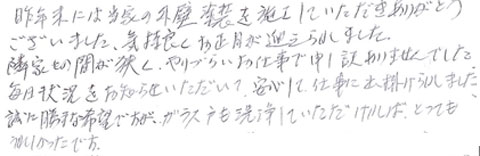 昨年末には当家の外壁塗装を施工していただきありがとう
ございました。気持良くお正月が迎えられました。
隣家との間が狭く、やりづらいお仕事で申し訳ありませんでした。
毎日状況をお知らせいただいて、安心して仕事に出掛けられました
誠に勝手な希望ですが、ガラス戸も洗浄していただければ、とっても
うれしかったです。